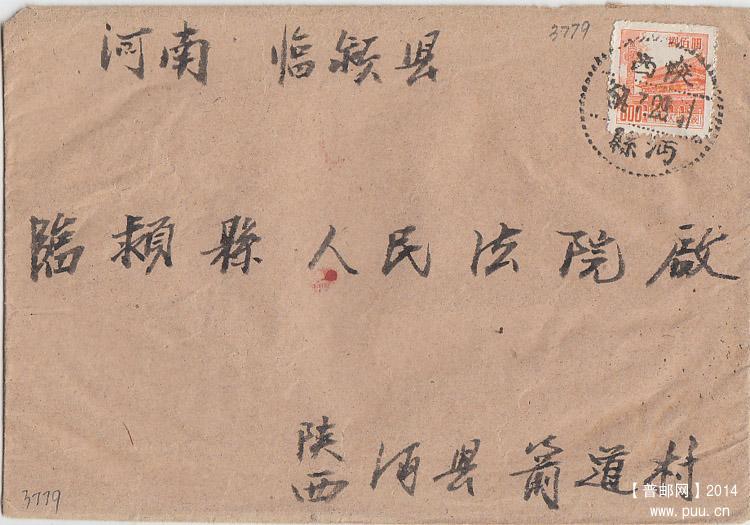 河南 临颍县
3779
捌佰圓
800
陕西
沔縣
臨頴縣人民法院啟
陕西沔县箭道村
3779
【普邮网】2014
www.puu.cn